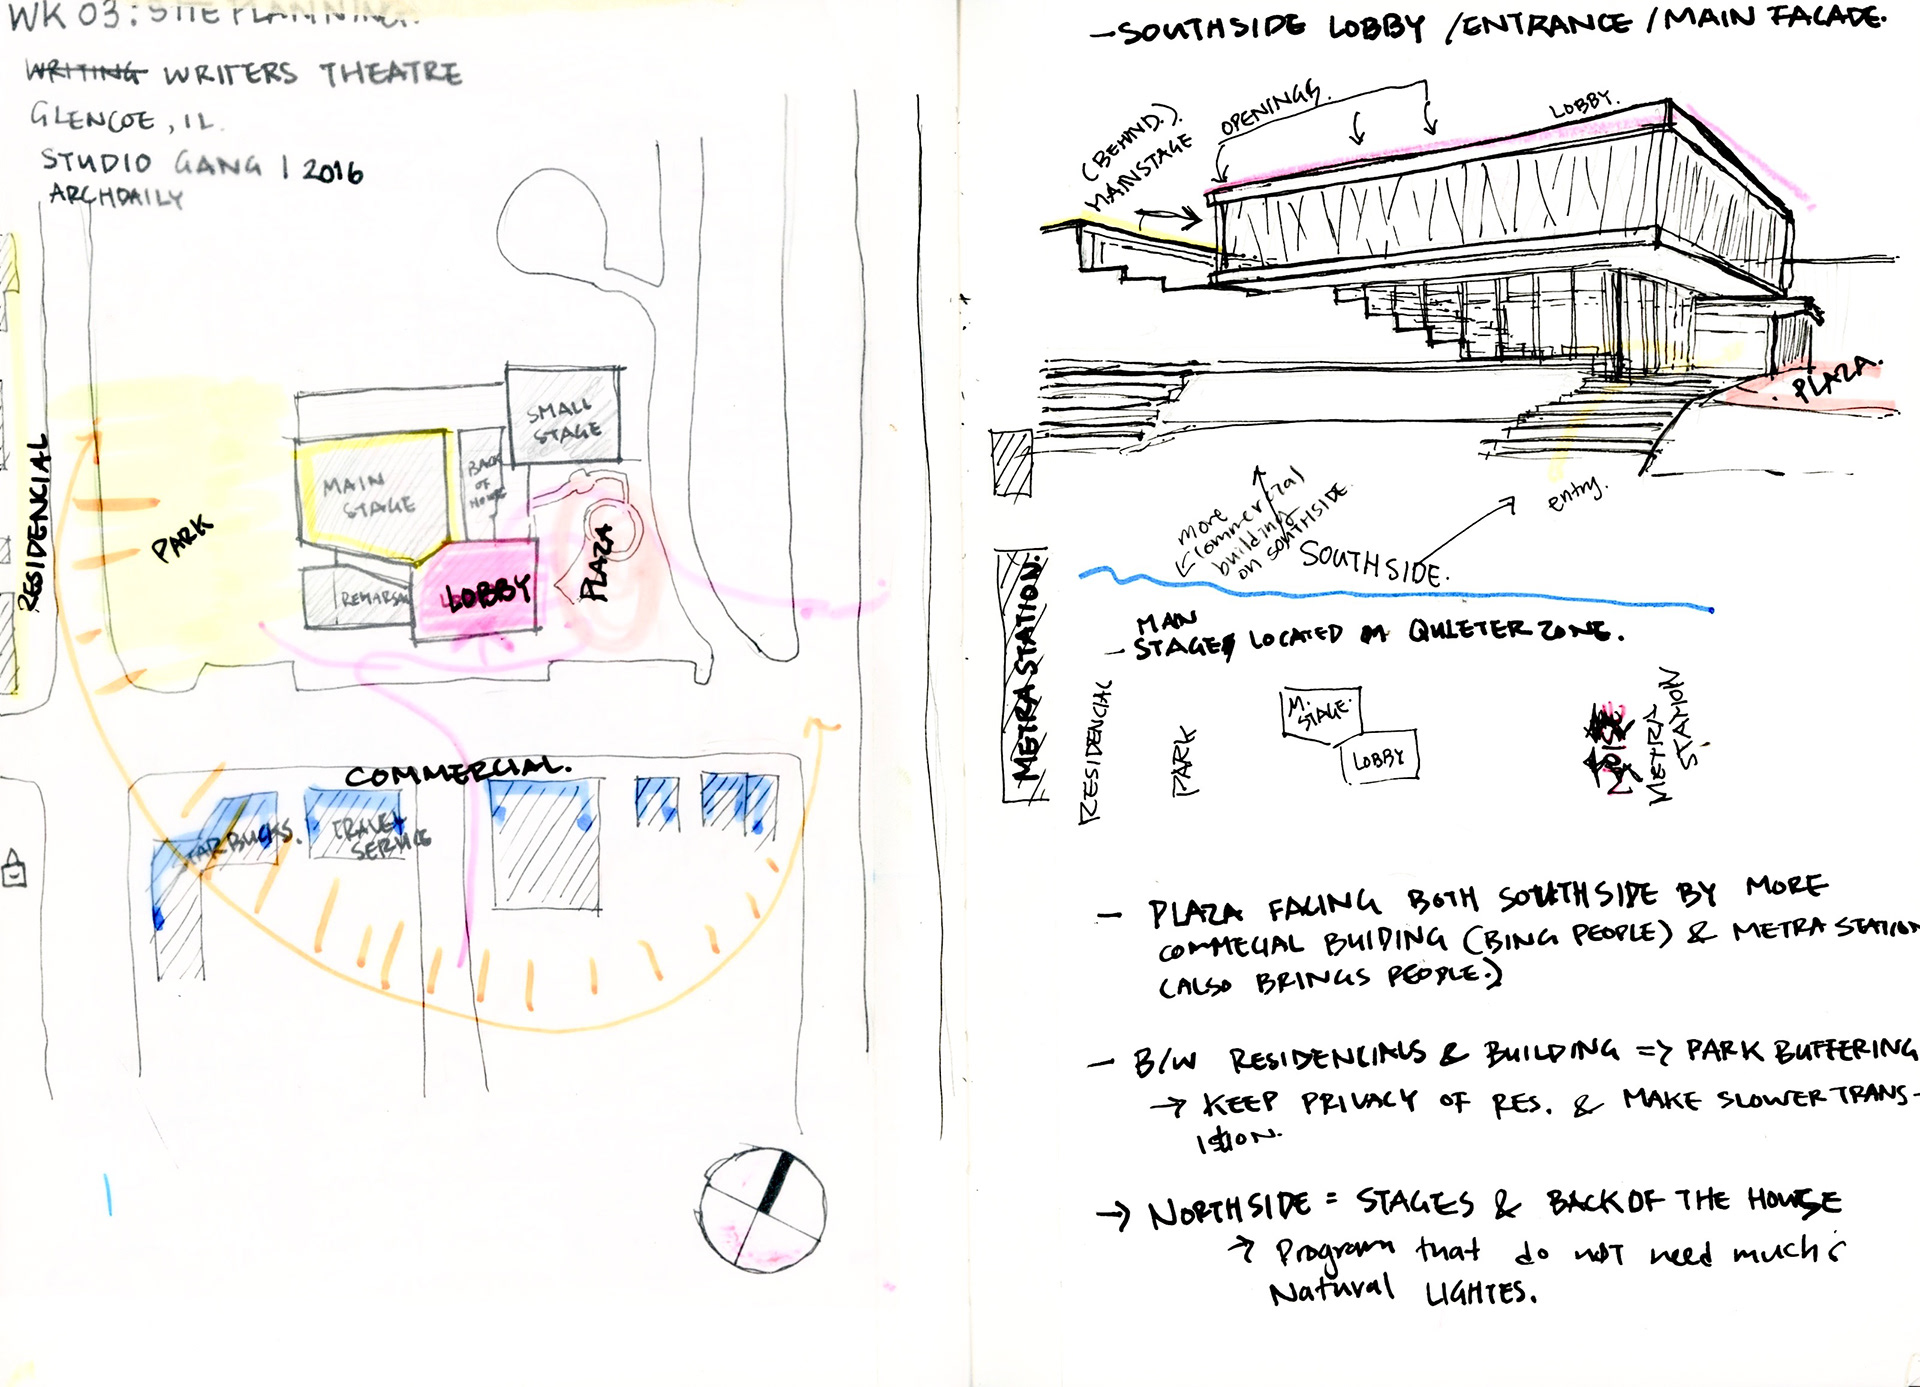 WK 03: SITE PLANNING.
WRITING WRITERS THEATRE
GLENCOE, IL.
STUDIO GANG | 2016
ARCHDAILY
RESIDENCIAL
PARK
SMALL
STAGE
MAIN
STAGE
BACK
OF
HOUSE
REHARSAL
LOBBY
PLAZA
COMMERCIAL.
STARBUCKS.
TRAVEL
SERVICE
METRA STATION.
- SOUTHSIDE LOBBY / ENTRANCE / MAIN FACADE.
(BEHIND.)
MAINSTAGE
OPENINGS.
LOBBY.
PLAZA.
entry.
more
commercial
building
on southside.
SOUTHSIDE.
MAIN
- STAGE LOCATED IN QUIETER ZONE.
RESIDENCIAL
PARK
M.
STAGE.
LOBBY
NOISE
METRA
STATION
- PLAZA FACING BOTH SOUTHSIDE BY MORE
COMMECIAL BUIDING (BING PEOPLE) & METRA STATION
(ALSO BRINGS PEOPLE.)
- B/W RESIDENCIALS & BUILDING => PARK BUFFERING
→ KEEP PRIVACY OF RES. & MAKE SLOWER TRANS-
ISTION.
→ NORTHSIDE = STAGES & BACK OF THE HOUSE
→ Program that do not need much
Natural LIGHTES.